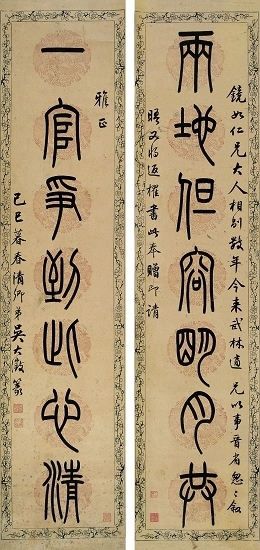 鏡如仁兄大人相別數年今来武林適兄以事晋省怱〻敘
兩地但容明月共
晤又將返櫂書此奉贈即請
雅正
一官爭到此心清
己巳暮春清卿弟吴大澂篆